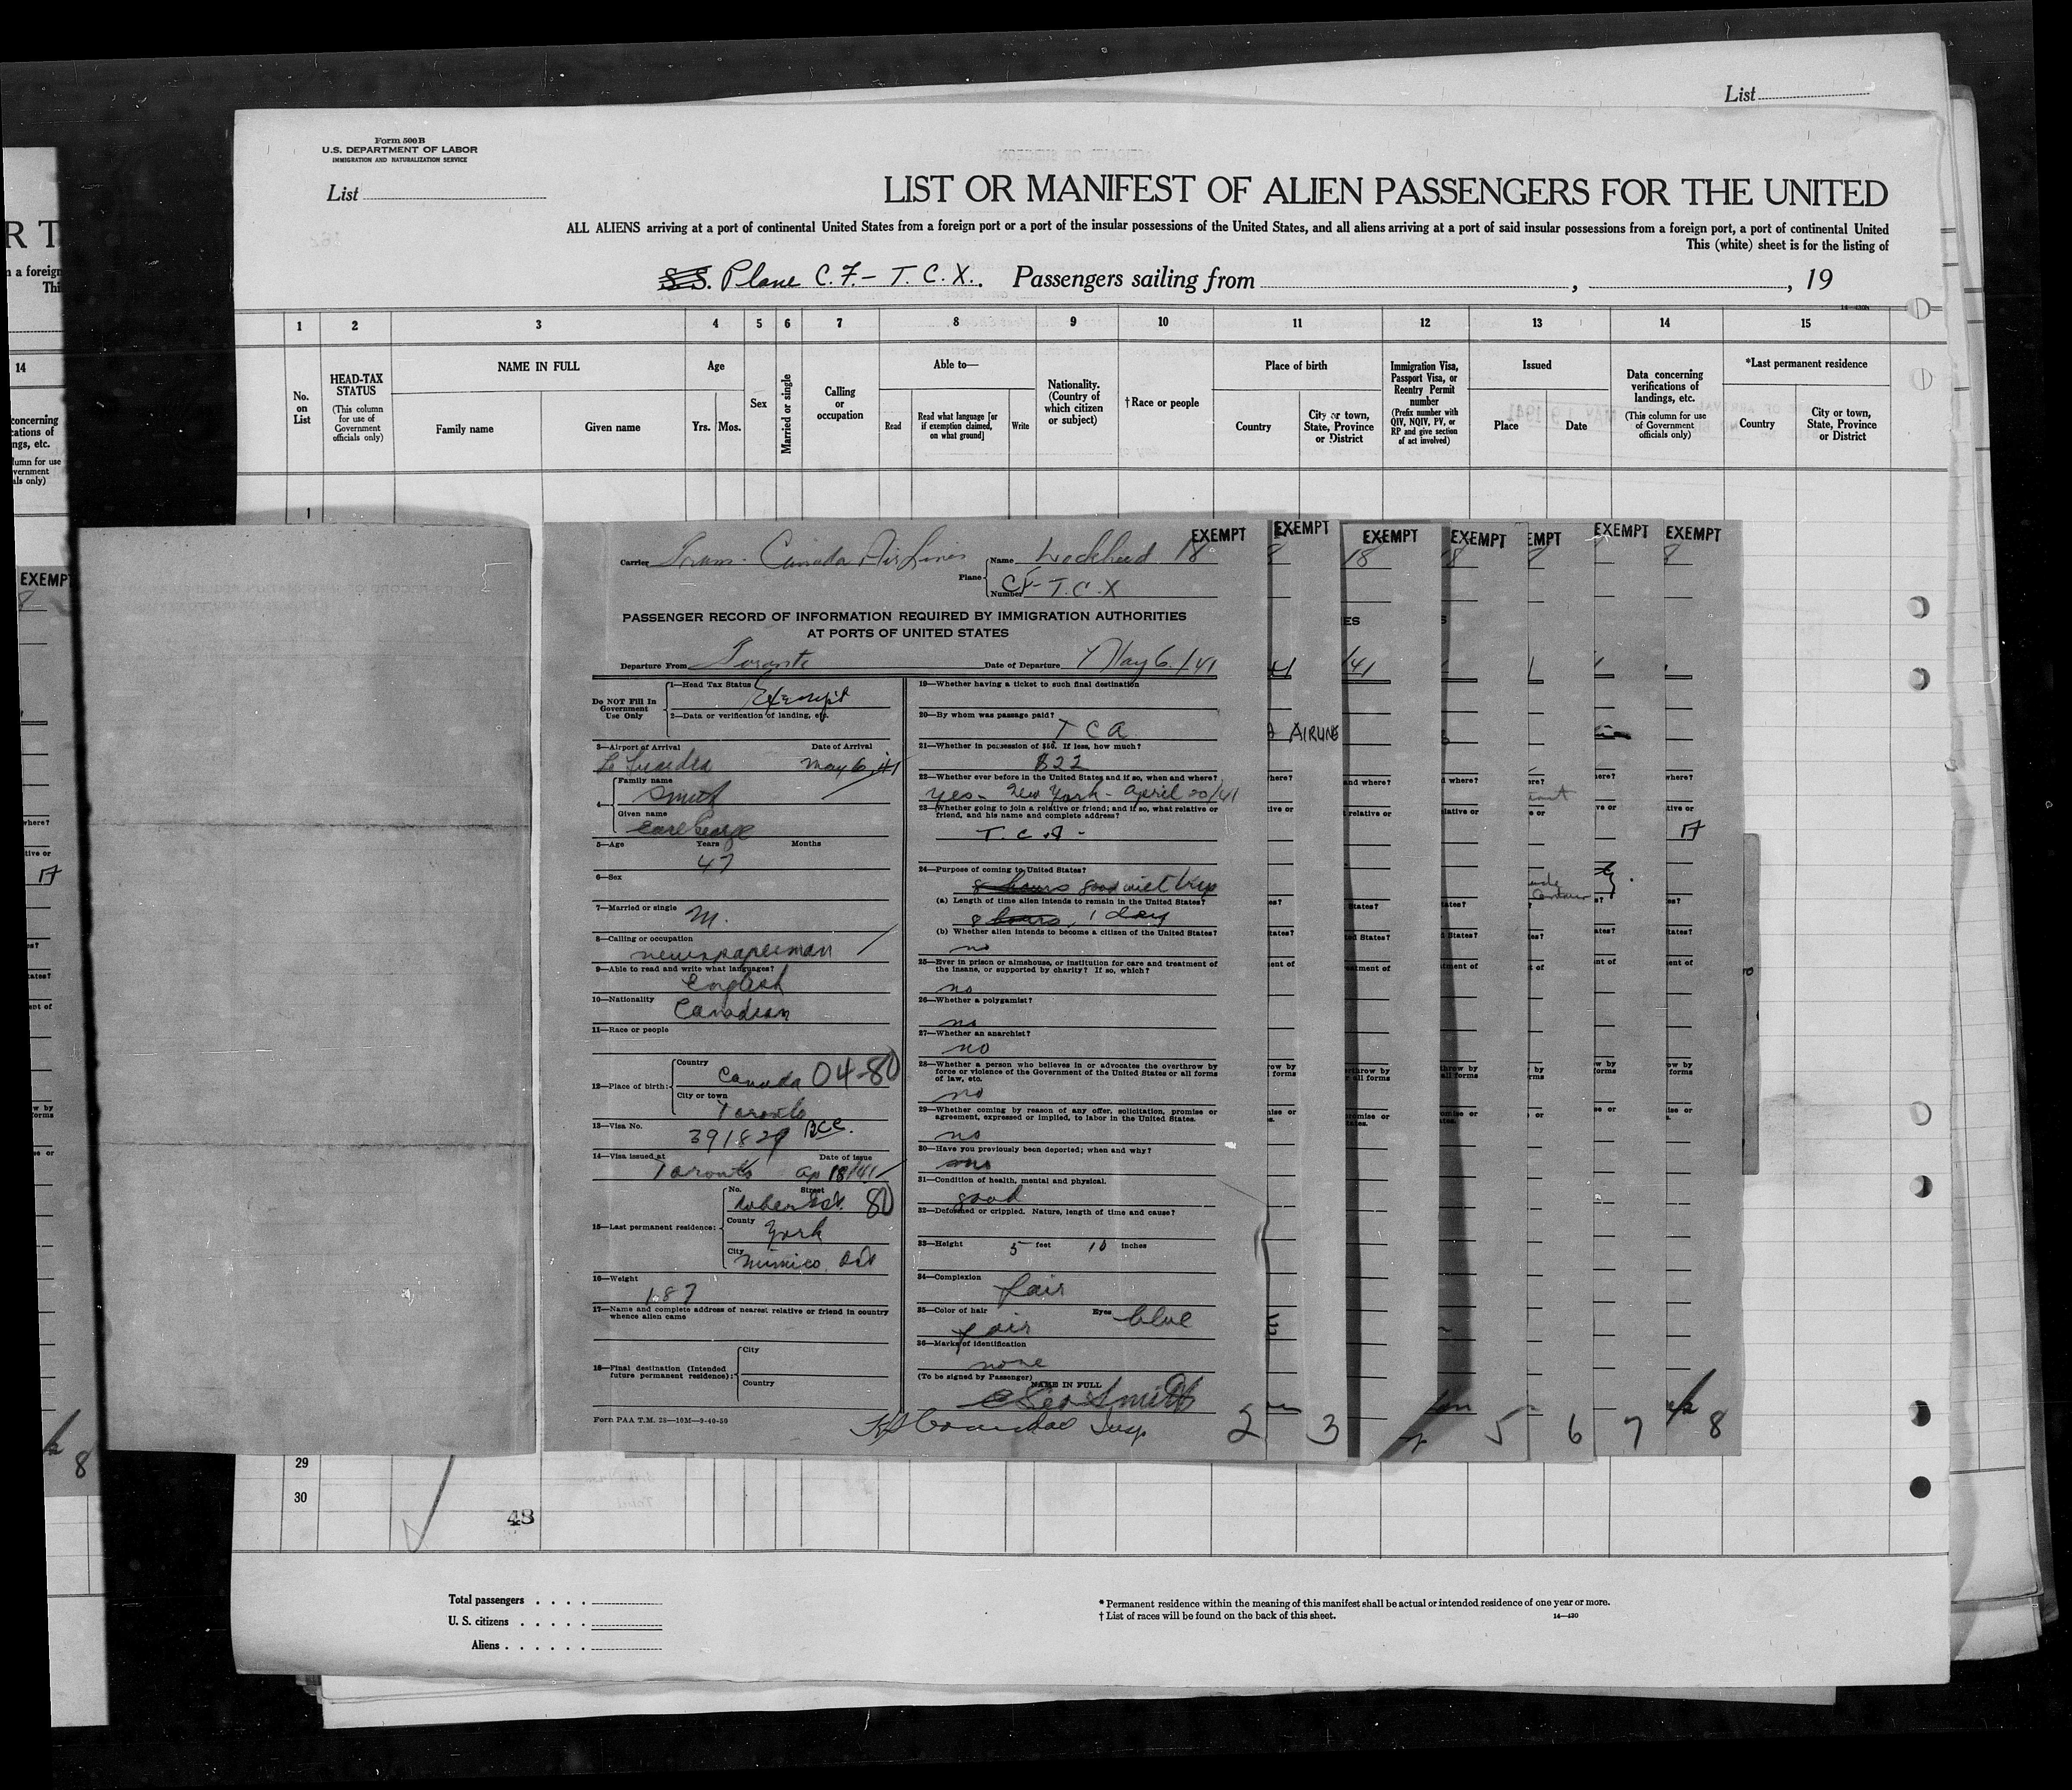 List
Form 500 B
U.S. DEPARTMENT OF LABOR
IMMIGRATION AND NATURALIZATION SERVICE
List
LIST OR MANIFEST OF ALIEN PASSENGERS FOR THE UNITED
ALL ALIENS arriving at a port of continental United States from a foreign port or a port of the insular possessions of the United States, and all aliens arriving at a port of said insular possessions from a foreign port, a port of continental United
This (white) sheet is for the listing of
S.S. Plane C.F.- T.C.X. Passengers sailing from , , 19
1 2 3 4 5 6 7 8 9 10 11 12 13 14 15
No. on List
HEAD-TAX STATUS
(This column for use of Government officials only)
NAME IN FULL
Family name
Given name
Age
Yrs. Mos.
Sex
Married or single
Calling or occupation
Able to—
Read
Read what language [or if exemption claimed, on what ground]
Write
Nationality. (Country of which citizen or subject)
† Race or people
Place of birth
Country
City or town, State, Province or District
Immigration Visa, Passport Visa, or Reentry Permit number
(Prefix number with QIV, NQIV, PV, or RP and give section of act involved)
Issued
Place
Date
Data concerning verifications of landings, etc.
(This column for use of Government officials only)
*Last permanent residence
Country
City or town, State, Province or District
1
EXEMPT EXEMPT EXEMPT EXEMPT EMPT EXEMPT EXEMPT
Carrier Trans-Canada Air Lines
Plane Name Lockheed 18
Number CF-T.C.X
PASSENGER RECORD OF INFORMATION REQUIRED BY IMMIGRATION AUTHORITIES
AT PORTS OF UNITED STATES
Departure From Toronto Date of Departure May 6/41
Do NOT Fill In Government Use Only
1—Head Tax Status Exempt
2—Data or verification of landing, etc.
3—Airport of Arrival Date of Arrival
La Guardia May 6, 41
4— Family name
Smith
Given name
Earl George
5—Age Years Months
47
6—Sex
7—Married or single M.
8—Calling or occupation
newspaperman
9—Able to read and write what languages?
English
10—Nationality
Canadian
11—Race or people
12—Place of birth: Country
Canada 04-80
City or town
Toronto
13—Visa No. 391829 BCC.
14—Visa issued at Date of issue
Toronto Ap 18/41
15—Last permanent residence: No. Street
80
County
York
City
Mimico, Ont
16—Weight
187
17—Name and complete address of nearest relative or friend in country whence alien came
18—Final destination (Intended future permanent residence): City
Country
Form PAA T.M. 25—10M—9-40-50
19—Whether having a ticket to such final destination
20—By whom was passage paid?
T C A
21—Whether in possession of $50. If less, how much?
$22
22—Whether ever before in the United States and if so, when and where?
Yes - New York - April 20/41
23—Whether going to join a relative or friend; and if so, what relative or friend, and his name and complete address?
T. C. A -
24—Purpose of coming to United States?
8 hours good will trip
(a) Length of time alien intends to remain in the United States?
8 hours, 1 day
(b) Whether alien intends to become a citizen of the United States?
no
25—Ever in prison or almshouse, or institution for care and treatment of the insane, or supported by charity? If so, which?
no
26—Whether a polygamist?
no
27—Whether an anarchist?
no
28—Whether a person who believes in or advocates the overthrow by force or violence of the Government of the United States or all forms of law, etc.
no
29—Whether coming by reason of any offer, solicitation, promise or agreement, expressed or implied, to labor in the United States.
no
30—Have you previously been deported; when and why?
no
31—Condition of health, mental and physical.
good
32—Deformed or crippled. Nature, length of time and cause?
33—Height 5 feet 10 inches
34—Complexion
fair
35—Color of hair Eyes blue
fair
36—Marks of identification
none
(To be signed by Passenger)
NAME IN FULL
E Geo Smith
Insp
2 3 5 6 7 8
AIRLINE
29
30
48
Total passengers
U. S. citizens
Aliens
* Permanent residence within the meaning of this manifest shall be actual or intended residence of one year or more.
† List of races will be found on the back of this sheet.
14—430